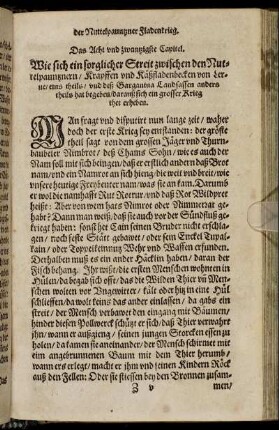 der Nuttelpawatzner Fladenkrieg.
Das Acht vnd zwantzigste Capitel.
Wie sich ein sorglicher Streit zwischen den Nut-
telpawntznern, Krapffen vnd Käßfladenbecken von Ler-
ne, eins theils, vnd deß Gargantua Landsassen anders
theils hat begeben, darauß sich ein grosser Krieg
thet erheben.
MAn fragt vnd disputirt nun lange zeit, waher
doch der erste Krieg sey entstanden: der gröste
theil sagt von dem grossen Jäger vnd Thurn-
bawheter Nimbrot, deß Chams Sohn, wie es auch der
Nam soll mit sich bringen, daß er erstlich anders daß Brot
nam, vnd ein Nimrot an sich hieng, die weit vnd breit, wie
vnsere heutige Freybeuter nam, was sie an kam. Darumb
er wol die namhafft Rut Roerut, vnd daß Rot Wildpret
hieß: Aber von wem hats Nimrod oder Nimmerrat ge-
habt? Dann man weiß, daß sie auch vor der Sündfluß ge-
kriegt haben: sonst het Cain seinen Bruder nicht erschla-
gen, noch feste Stätt gebawet, oder sein Enckel Tupal-
kain, oder Topicolkmütz Wehr vnd Waffen erfunden.
Derhalben muß es ein ander Häcklin haben, daran der
Fisch behang. Ihr wißt, die ersten Menschen wohnten in
Hülen, da begab sich offt, das die Wilden Thier vnd Men-
schen wolten vor Vngewitter, kält oder hitz in eine Hül
schlieffen, da wolt keins das ander einlassen, da gabs ein
streit, der Mensch verbawet den eingang mit Bäumen,
hinder diesen Pollwerck schützt er sich, daß Thier verwahrt
jhn, wann er außzieng, seinen jungen Storcken essen zu
holen, da kamen sie aneinander, der Mensch schirmet mit
eim angebrunnenen Baum mit dem Thier herumb,
wann ers erlegt, macht er ihm vnd seinen Kindern Röck
auß den Fellen: Oder sie stiessen bey den Bronnen zusam-
Z v
men,